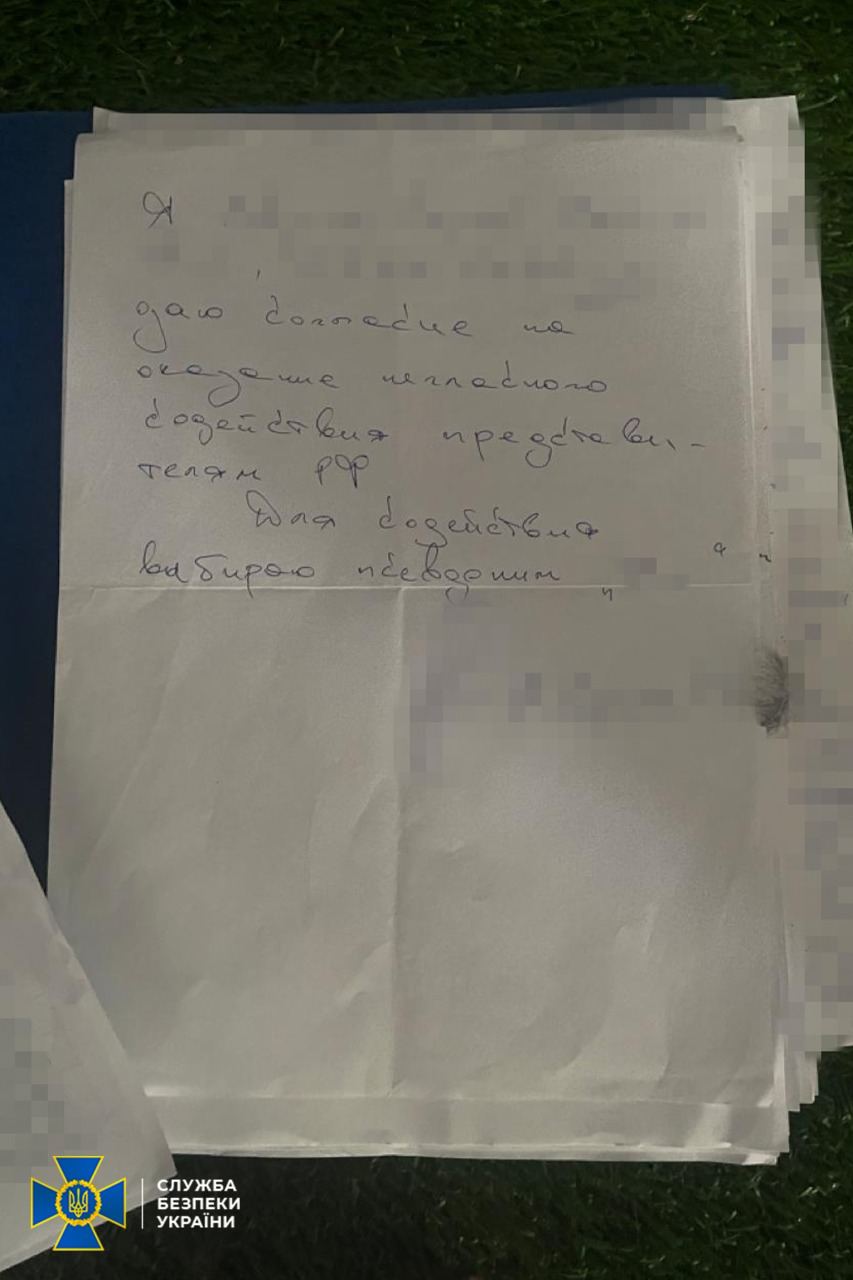 Я
даю согласие на
оказание негласного
содействия представи-
телям РФ
Для содействия
выбираю псевдоним
СЛУЖБА
БЕЗПЕКИ
УКРАЇНИ